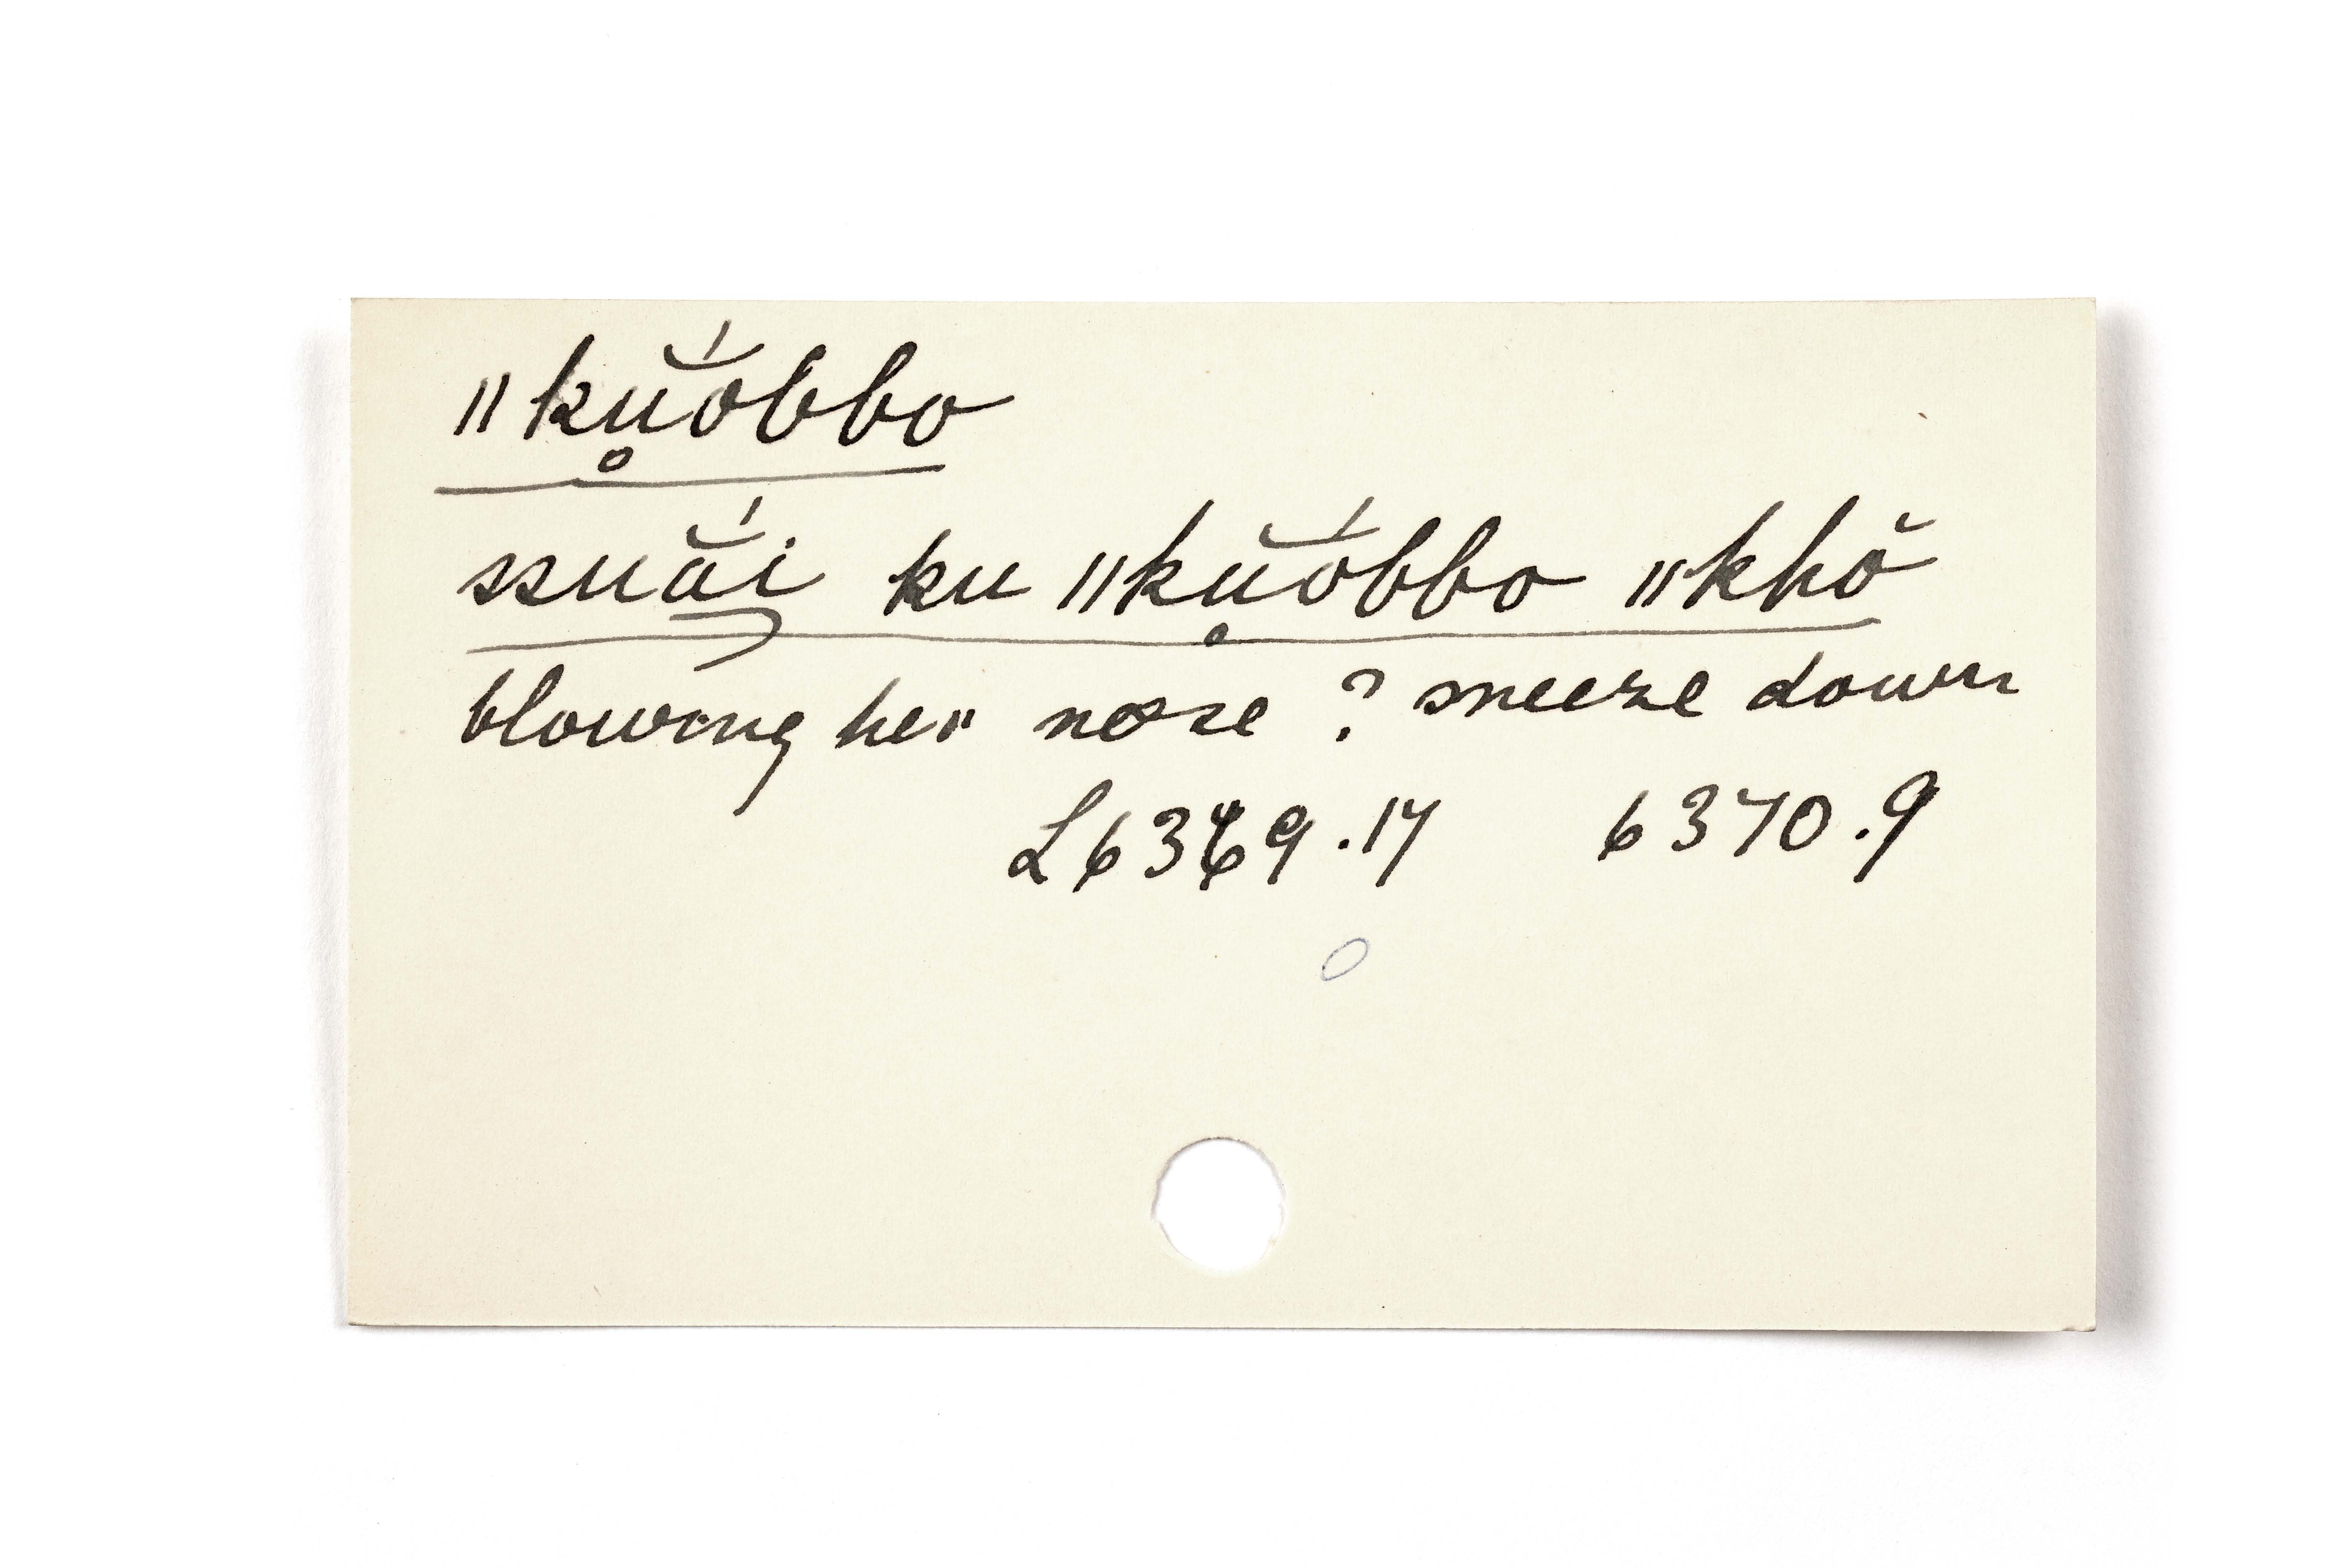 ǁku̥ŏ́bbo
ssuắi ku ǁku̥ŏ́bbo ǁkhŏ
blowing her nose ? sneeze down
L6369.17 6370.9